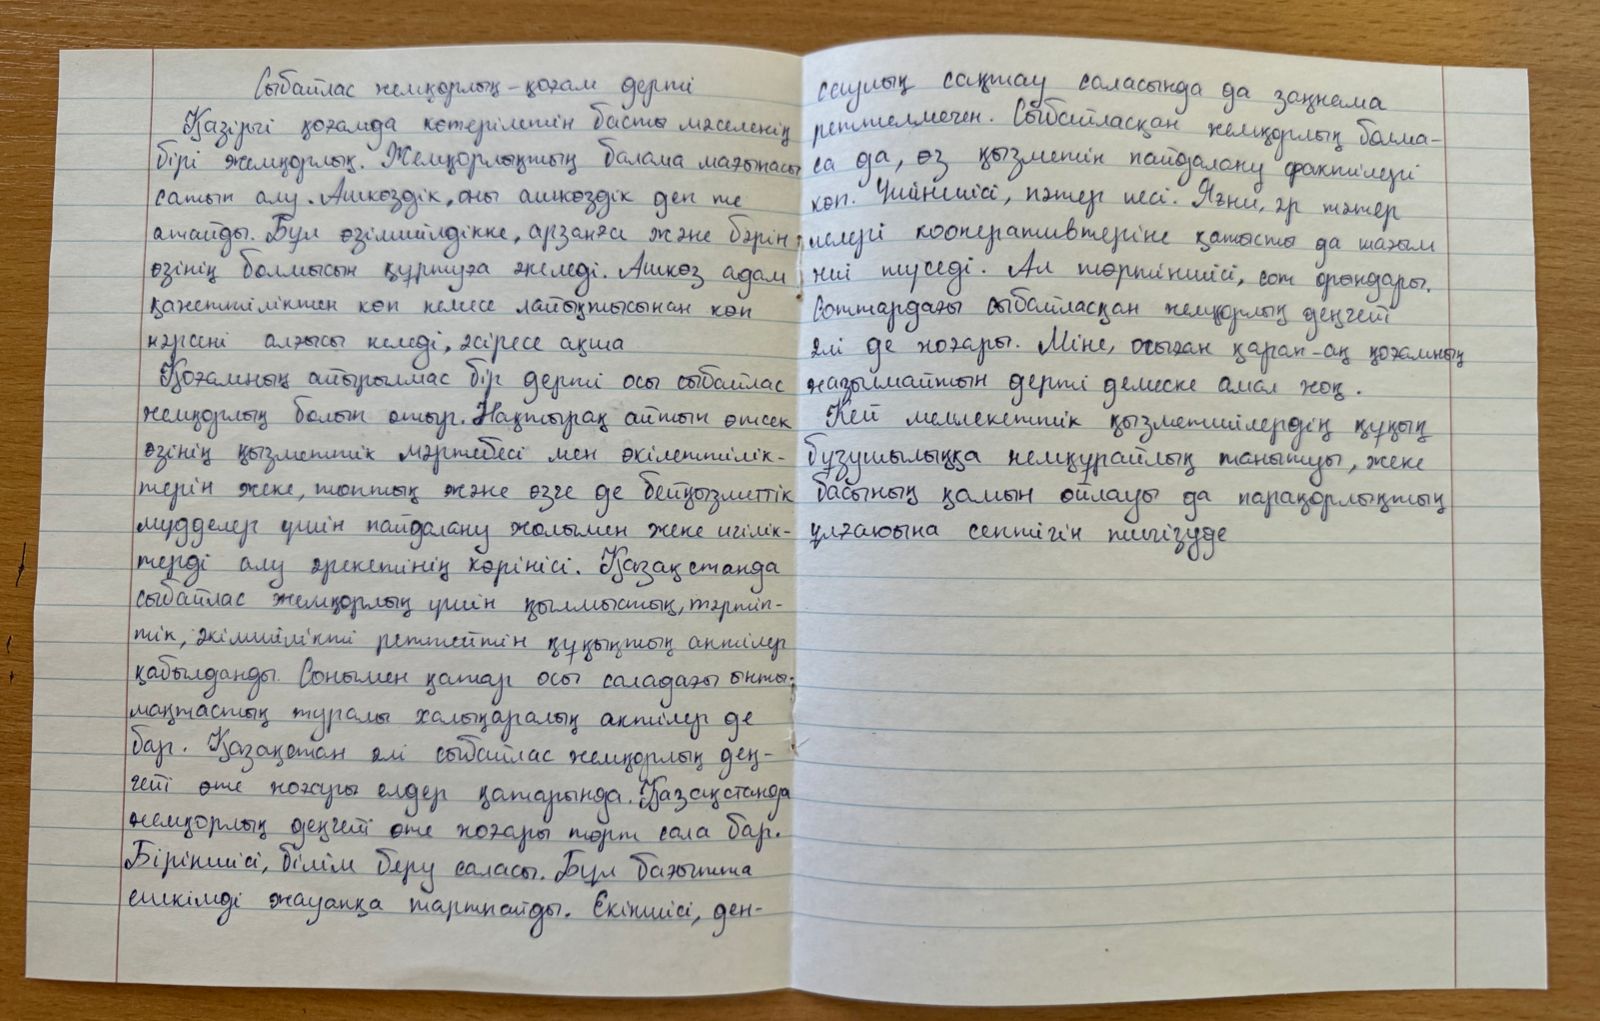 Сыбайлас жемқорлық – қоғам дерті
Қазіргі қоғамда көтерілетін басты мәселенің
бірі жемқорлық. Жемқорлықтың балама мағынасы
сатып алу. Ашкөздік, оны ашкөздік деп те
атайды. Бұл өзімшілдікке, арзанға және бәрін
өзінің болмысын құртуға әкеледі. Ашкөз адам
қажеттіліктен көп немесе лайықтысынан көп
нәрсені алғысы келеді, әсіресе ақша
Қоғамның айырылмас бір дерті осы сыбайлас
жемқорлық болып отыр. Нақтырақ айтып өтсек
өзінің қызметтік мәртебесі мен өкілеттілік-
терін жеке, топтық және өзге де бейқызметтік
мүдделер үшін пайдалану жолымен жеке игілік-
терді алу әрекетінің көрінісі. Қазақстанда
сыбайлас жемқорлық үшін қылмыстық, тәртіп-
тік, әкімшілікті реттейтін құқықтық актілер
қабылданды. Сонымен қатар осы саладағы ынты-
мақтастық туралы халықаралық актілер де
бар. Қазақстан әлі сыбайлас жемқорлық дең-
гейі өте жоғары елдер қатарында. Қазақстанда
жемқорлық деңгейі өте жоғары төрт сала бар.
Біріншісі, білім беру саласы. Бұл бағытта
ешкімді жауапқа тартпайды. Екіншісі, ден-
саулық сақтау саласында да заңнама
реттелмеген. Сыбайласқан жемқорлық болма-
са да, өз қызметін пайдалану фактілері
көп. Үшіншісі, пәтер иесі. Яғни, әр пәтер
иелері кооперативтеріне қатысты да шағым
жиі түседі. Ал төртіншісі, сот орындары.
Соттардағы сыбайласқан жемқорлық деңгейі
әлі де жоғары. Міне, осыған қарап-ақ қоғамның
жазылмайтын дерті демеске амал жоқ.
Кей мемлекеттік қызметшілердің құқық
бұзушылыққа немқұрайлық танытуы, жеке
басының қамын ойлауы да парақорлықтың
ұлғаюына септігін тигізуде